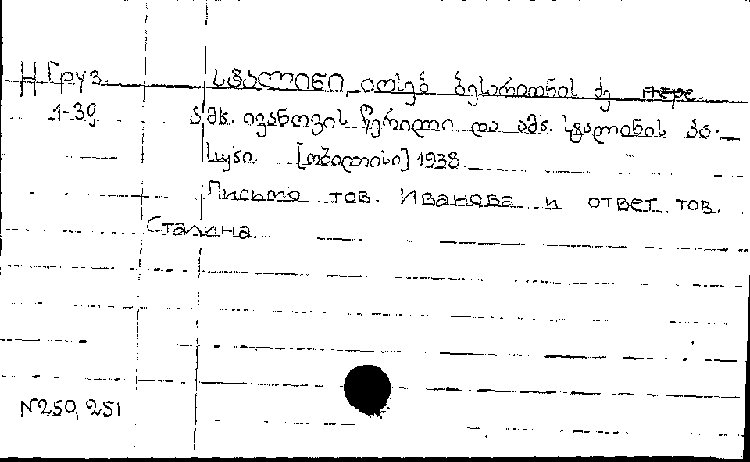 Н Груз. სტალინი, იოსებ ბესარიონის ძე
1-39 ამხ. ივანოვის წერილი და ამხ. სტალინის პა-
სუხი. [თბილისი] 1938.
Письмо тов. Иванова и ответ тов.
Сталина
N250, 251